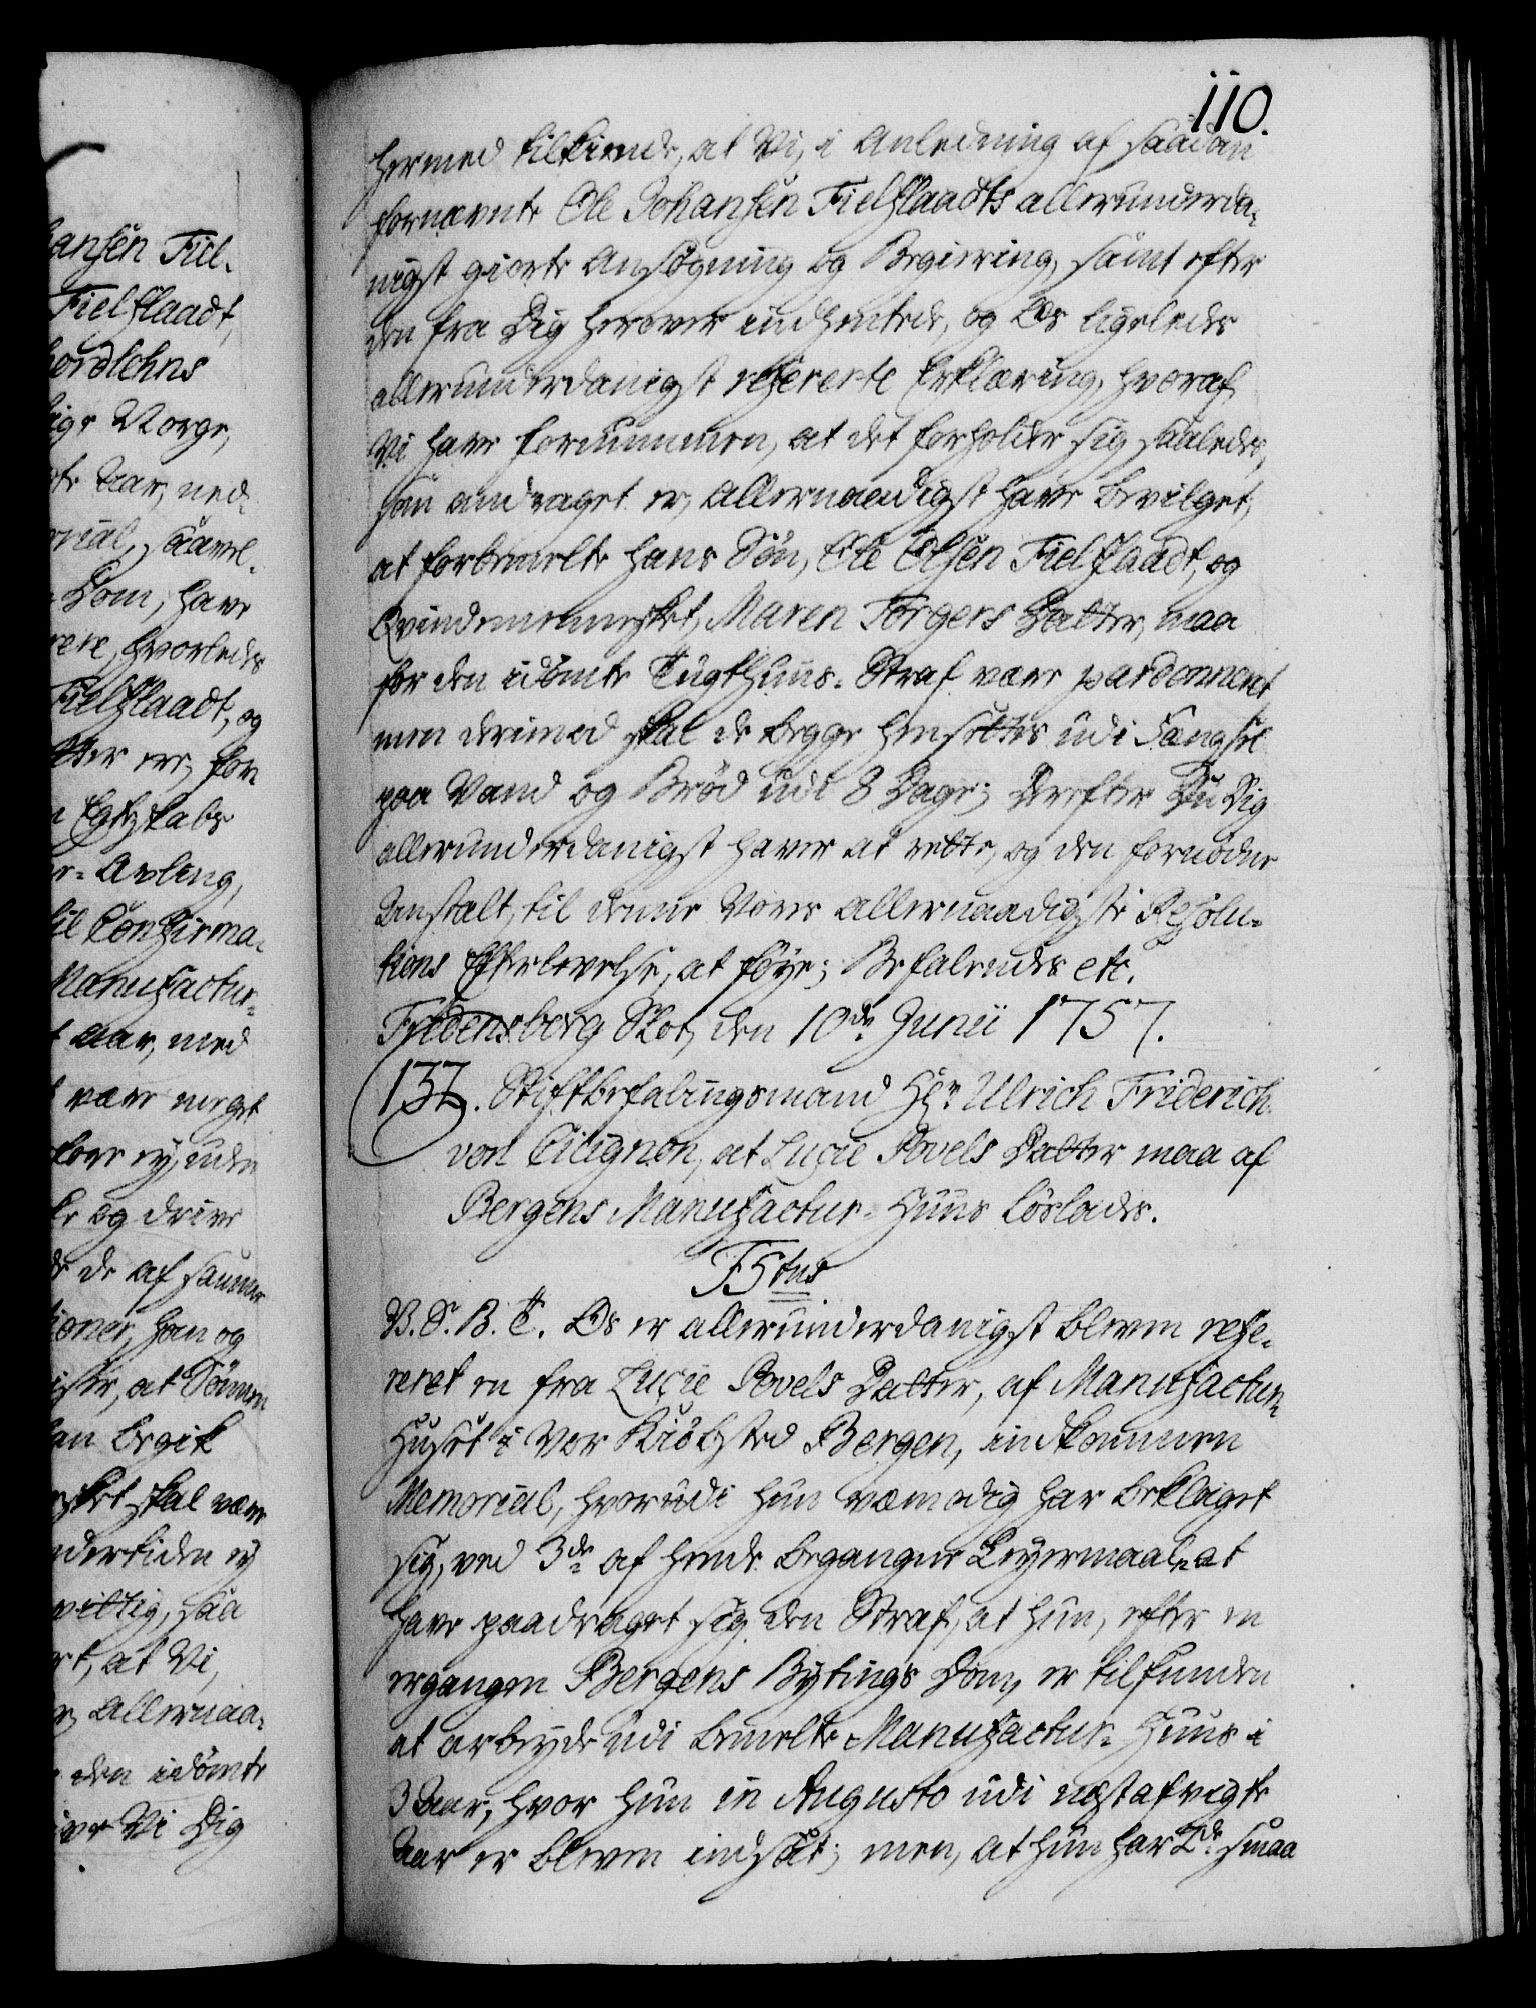 110.
hermed tilkiende, at Vi, i Anledning af saadan
fornævnte Ole Johansen Fielflaadts allerunderda-
nigst giorte Ansøgning og Begiering, samt efter
den fra Dig herover indhentede, og Os ligeledes
allerunderdanigst refererte Erklæring, hvoraf
Vi have fornummen, at det forholder sig saaledes,
som andraget er, Allernaadigst have bevilget,
at forbemelte hans Søn, Ole Olsen Fielflaadt, og
Qvindemennesket, Maren Torgers Datter, maa
for den idømte Tugthuus-Straf være pardonnert
men derimod skal de begge hensettes udi Fængsel
paa Vand og Brød udi 8 Dage; Derefter Du Dig
allerunderdanigst haver at rette, og den fornødne
Anstalt, til denne Vores allernaadigste Resolu-
tions Efterlevelse, at føye; Befalendes etc.
Fridensborg Slot, den 10de Junii 1757.
137. Stiftbefalingsmand Hr. Ulrich Friderich
von Cicignon, at Lucie Povels Datter maa af
Bergens Manufactur-Huus løslades.
F5tus
V. S. B. T. Os er allerunderdanigst bleven refe-
reret en fra Lucie Povels Datter, af Manufactur-
Huset i Vor Kiøbsted Bergen, indkommen
Memorial, hvorudi hun væmodig har beklaget
sig, ved 3de af hende begangne Leyermaal, at
have paadraget sig den Straf, at hun, efter en
ergangen Bergens Bytings Dom, er tilfunden
at arbeyde udi bemelte Manufactur-Huus i
3 Aar, hvor hun in Augusto udi nestafvigte
Aar er bleven indsat; men, at hun har 2de smaa
ansen Fiel-
Fielflaadt,
nordlehns
ige Norge,
Aar, ned-
orial, saavel-
Dom, have
rere, hvorledes
Fielflaadt, og
tter ere, for
Egteskabs
-Avling,
til Confirma-
Manufactur-
Aar, med
være meget
ey, uden
og drive
de af samme
han og
at Sønnen
begik
skal være
ndertiden ey
vittig, saa
at Vi,
Allernaa-
den idømte
Vi Dig